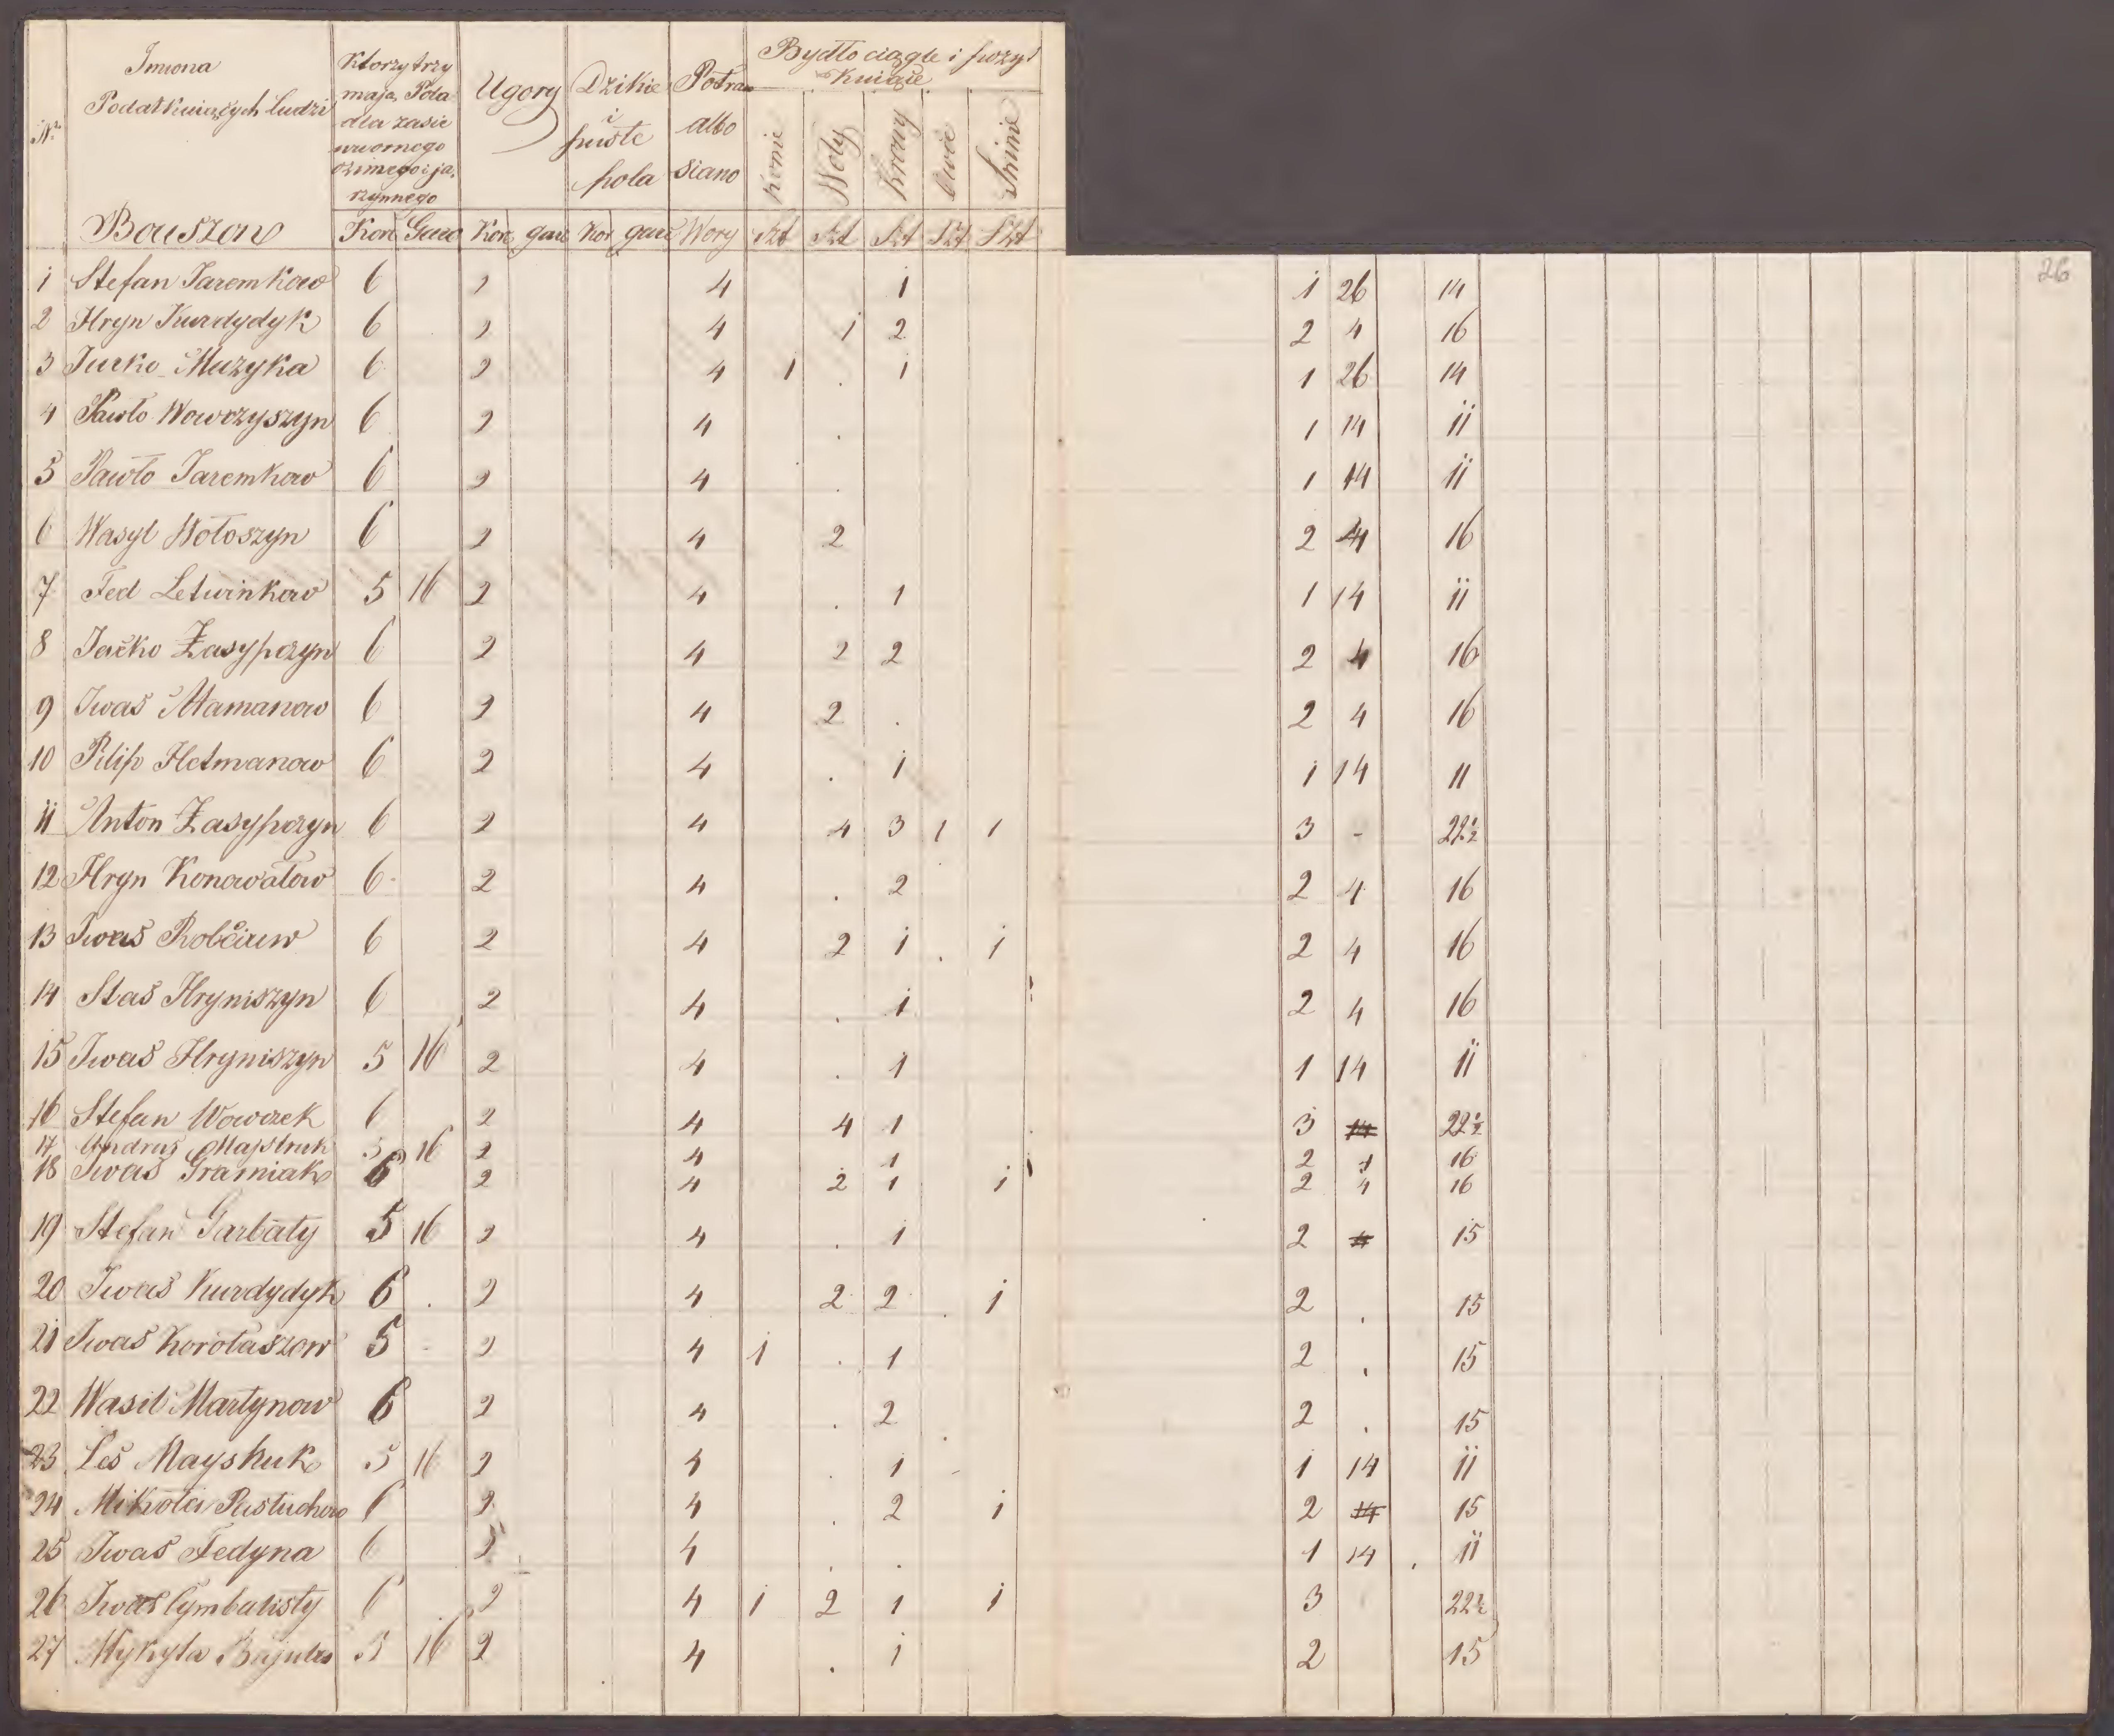 Nr Imiona Podatkuiących ludzi
Ktorzy trzymaią Pola dla zasiewu ornego ozimego i jarzynnego
Ugory
Dzikie i puste pola
Potraw albo siano
Bydło ciągłe i pozyt
kuiące
Konie Woły Krowy Owce Swinie
Bouszow Kor Garc Kor garc Kor garc Wory Szt Szt Szt Szt Szt
26
1 Stefan Jaremkow 6 2 4 1 1 26 14
2 Hryn Kurdydyk 6 2 4 1 2 2 4 16
3 Jurko Muzyka 6 2 4 1 . 1 1 26 14
4 Pawło Wowczyszyn 6 2 4 . 1 14 11
5 Pawło Jaremkow 6 2 4 . 1 14 11
6 Wasyl Wołoszyn 6 2 4 2 2 4 16
7 Fed Letwinkow 5 16 2 4 . 1 1 14 11
8 Jaćko Zasypczyn 6 2 4 2 2 2 4 16
9 Iwaś Mamanow 6 2 4 2 . 2 4 16
10 Pilip Hetmanow 6 2 4 . 1 1 14 11
11 Anton Zasypczyn 6 2 4 4 3 1 1 3 - 22½
12 Hryn Konowałow 6 2 4 . 2 2 4 16
13 Iwaś Robciuw 6 2 4 2 1 . 1 2 4 16
14 Staś Hryniszyn 6 2 4 . 1 2 4 16
15 Iwaś Hryniszyn 5 16 2 4 . 1 1 14 11
16 Stefan Wowczek 6 2 4 4 1 3 14 22½
17 Andrus Majstruk 5 16 2 4 1 2 4 16
18 Iwaś Gramiak 6 2 4 2 1 1 2 4 16
19 Stefan Garbaty 5 16 2 4 . 1 2 4 15
20 Iwaś Kurdydyk 6 . 2 4 2 2 . 1 2 . 15
21 Iwaś Korołaszow 5 - 2 4 1 . 1 2 . 15
22 Wasil Martynow 6 2 4 . 2 2 . 15
23 Leś Mayskuk 5 16 2 4 . 1 1 14 11
24 Mikołai Pastuchow 6 2 4 . 2 1 2 14 15
25 Iwaś Fedyna 6 2 4 . . 1 14 . 11
26 Iwaś Cymbalisty 6 2 4 1 2 1 1 3 22½
27 Mykyta 5 16 2 4 . 1 2 15